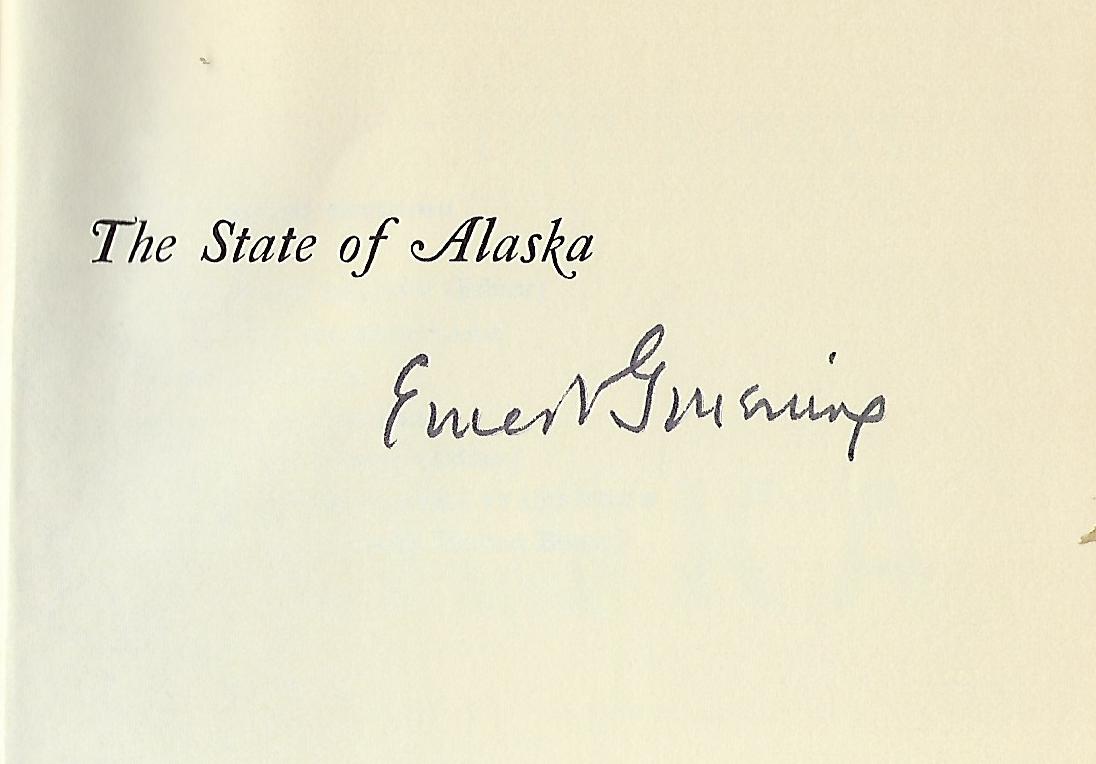 The State of Alaska
Ernest Gruening